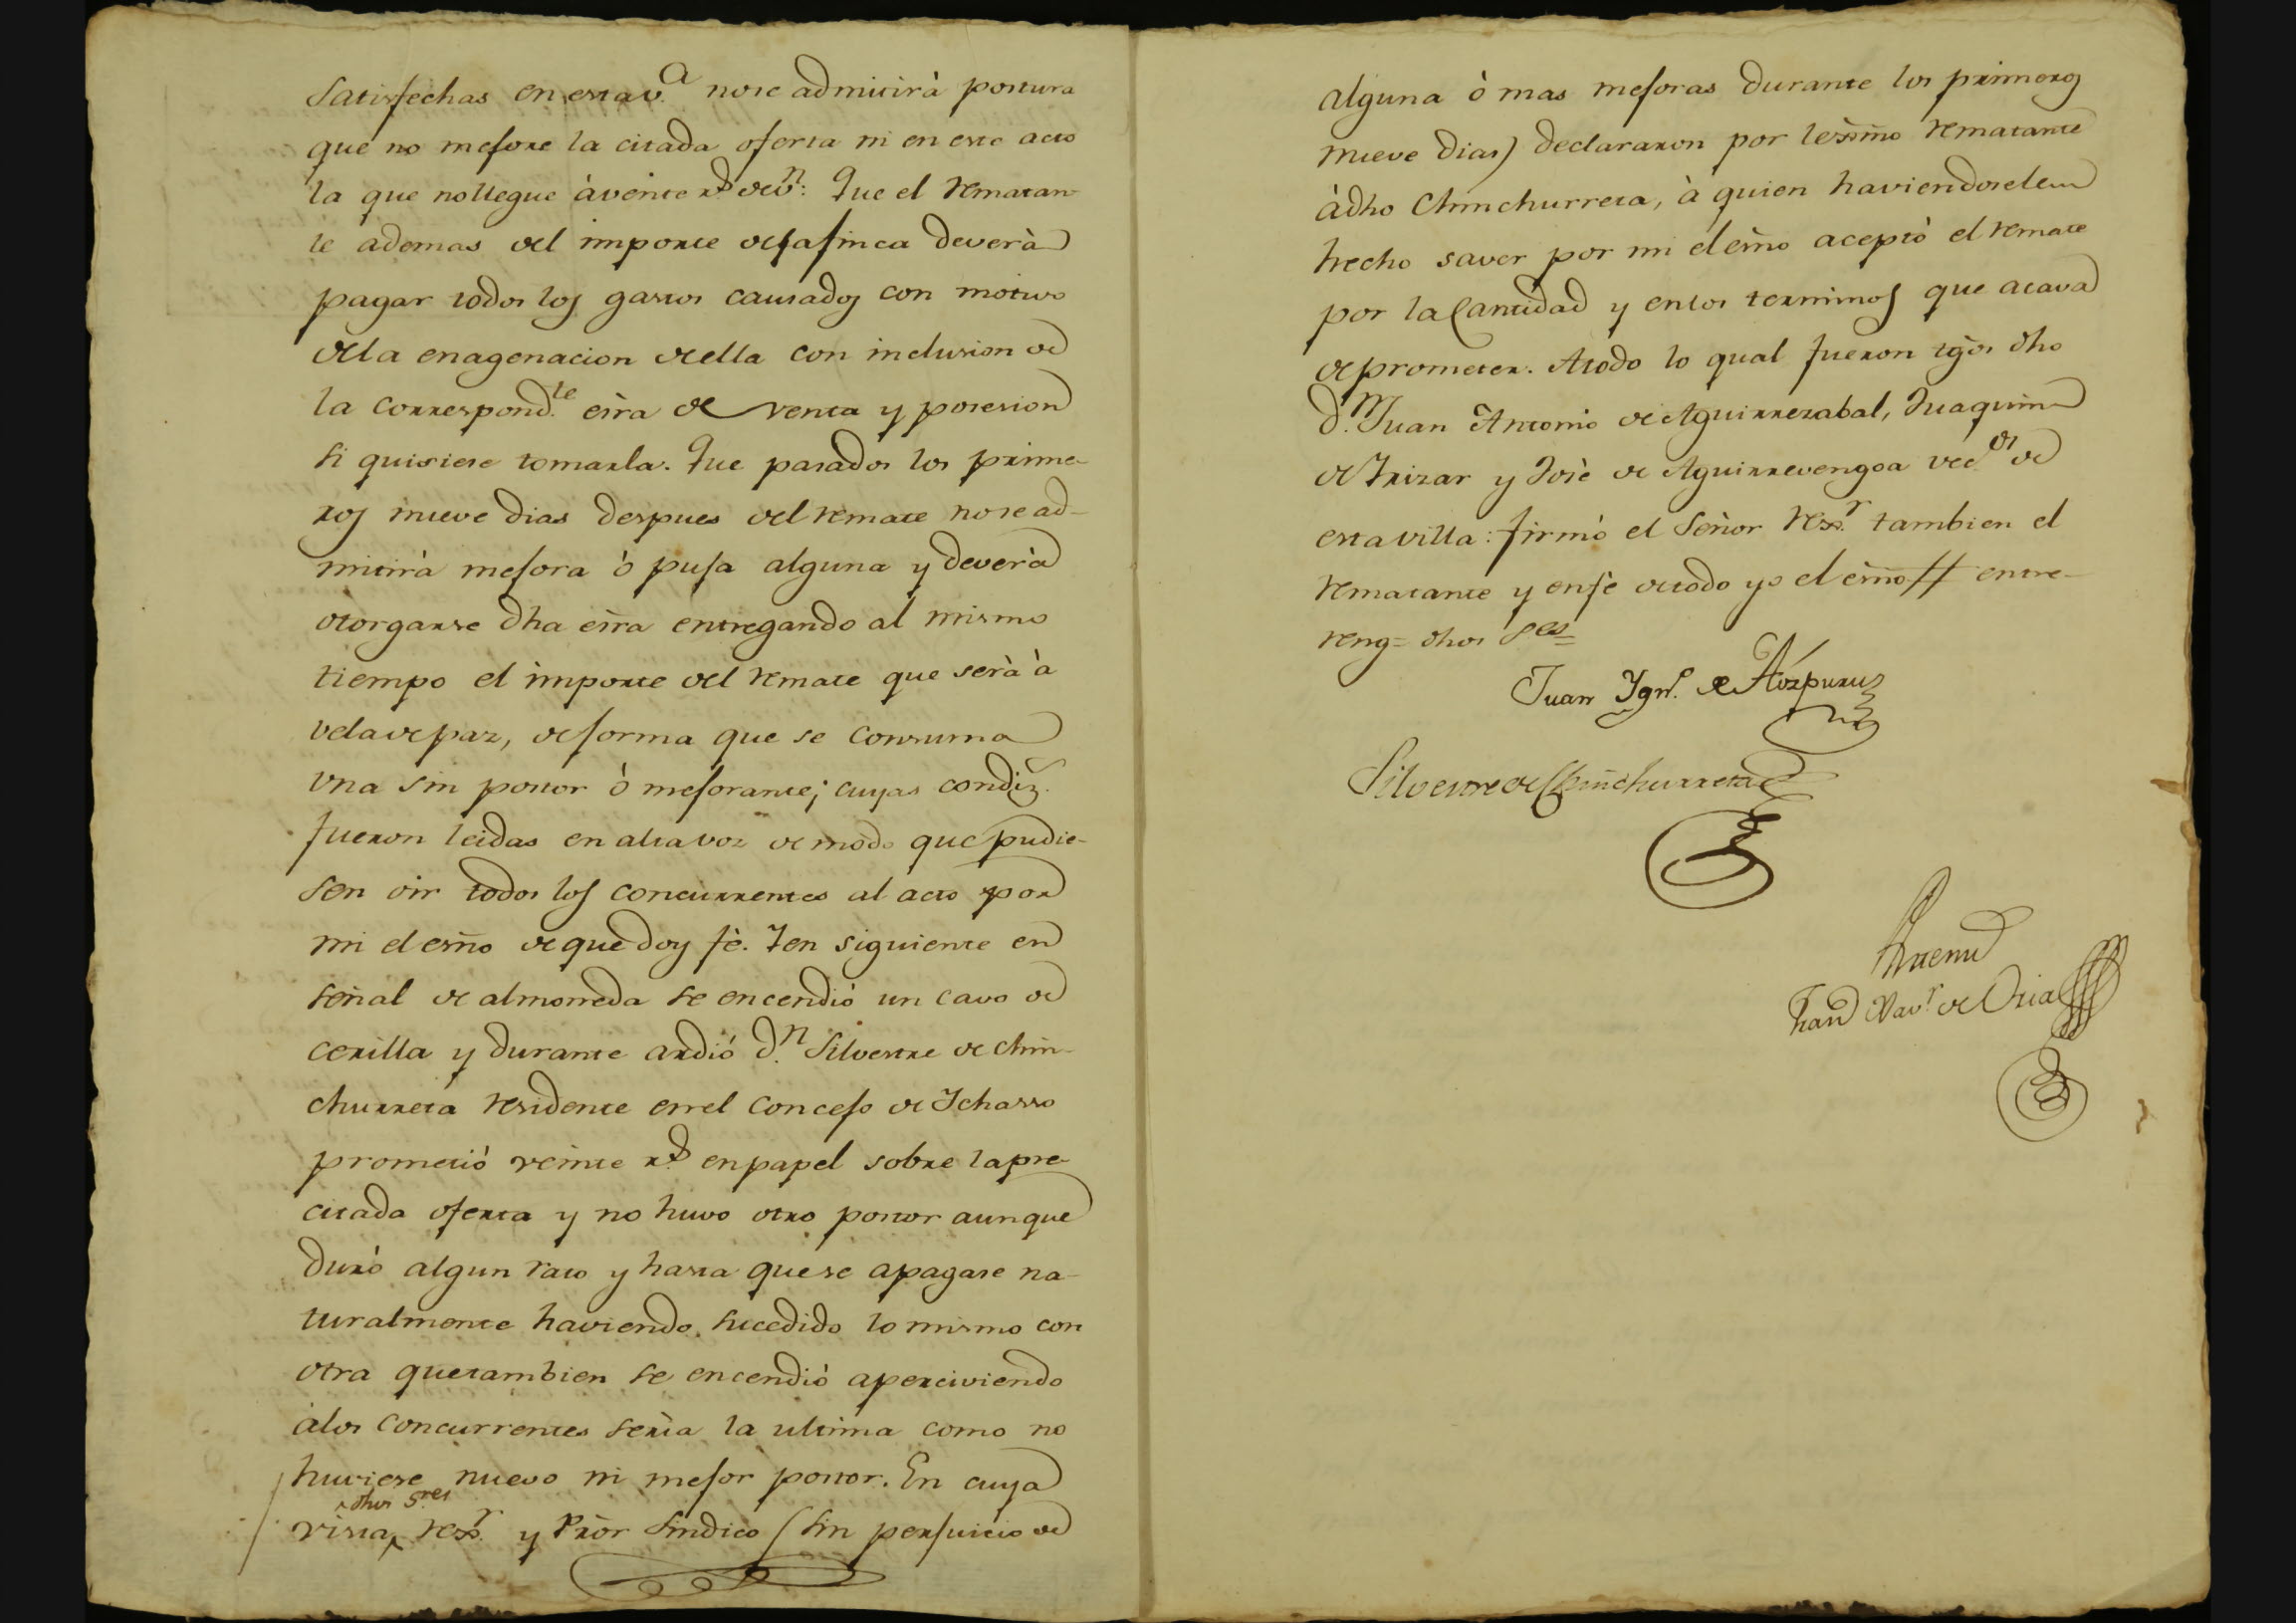 Satisfechas en esta v.ᵃ no se admitirà postura
que no mejore la citada oferta ni en este acto
la que no llegue à veinte r.ˢ de v.ⁿ: Que el rematan-
te ademas del importe de la finca deverà
pagar todos los gastos causados con motivo
de la enagenacion de ella con inclusion de
la correspond.ᵗᵉ esr̃a de venta y posesion
si quisiese tomarla. Que pasados los prime-
ros nueve dias despues del remate no se ad-
mitirà mejora ò puja alguna y deverà
otorgarse dha esr̃a entregando al mismo
tiempo el importe del remate que serà à
vela de paz, de forma que se consuma
una sin postor ò mejorante; cuyas condiz.ˢ
fueron leidas en alta voz de modo que pudie-
sen oir todos los concurrentes al acto por
mi el esño de que doy fè. Y en siguiente en
señal de almoneda se encendió un cavo de
cerilla y durante ardió D.ⁿ Silvestre de Chin-
churreta residente en el concejo de Ichasso
prometió veinte r.ˢ en papel sobre la pre-
citada oferta y no huvo otro postor aunque
duró algun rato y hasta que se apagase na-
turalmente haviendo sucedido lo mismo con
otra que tambien se encendió aperciviendo
a los concurrentes seria la ultima como no
huviese nuevo ni mejor postor. En cuya
dhos S.ʳᵉˢ
vista rex.ʳ y Prõr Sindico (sin perjuicio de
alguna ò mas mejoras durante los primeros
nueve dias) declararon por lexmo rematante
à dho Chinchurreta, à quien haviendosele
hecho saver por mi el esño aceptó el remate
por la Cantidad y en los terminos que acava
de prometer. A todo lo qual fueron tg̃os dho
D.ⁿ Juan Antonio de Aguirrezabal, Juaquin
de Irizar y José de Aguirrevengoa vec.ᵒˢ de
esta villa: firmó el Señor Rex.ʳ tambien el
rematante y en fè de todo yo el esño // entre-
reng= dhos S.ᵉˢ=
Juan Ygn.º de Aizpuru
Silvestre de Chinchurreta
Antemi
Fran.ᶜᵒ Xav.ʳ de Oria